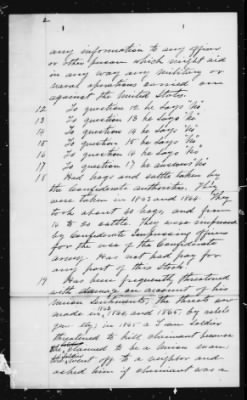 2
any information to any officer
or other person which might aid
in any way any military or
naval operations carried on
against the United States.
12 To question 12 he says "No"
13 To question 13 he says "no"
14 To question 14 he says "no"
15 To question 15 he says "No"
16 To question 16 he says "No"
17 To question 17 he answers "No"
18 Had hogs and cattle taken by
the Confederate authorities. They
were taken in 1863 and 1864. They
took about 30 hogs, and from
14 to 20 cattle. They also
by Confederate Impressing officers
for the use of the Confederate
army. Has not had pay for
any part of this Stock.
19 Has been frequently threatened
with on account of his
Union Sentiments. The threats were
made in 1863, 1864 and 1865; by rebels
in 1865 a Soldier
threatened to kill claimant because
he claimed to be a Union man.
went off to a neighbor and
asked him if claimant was a